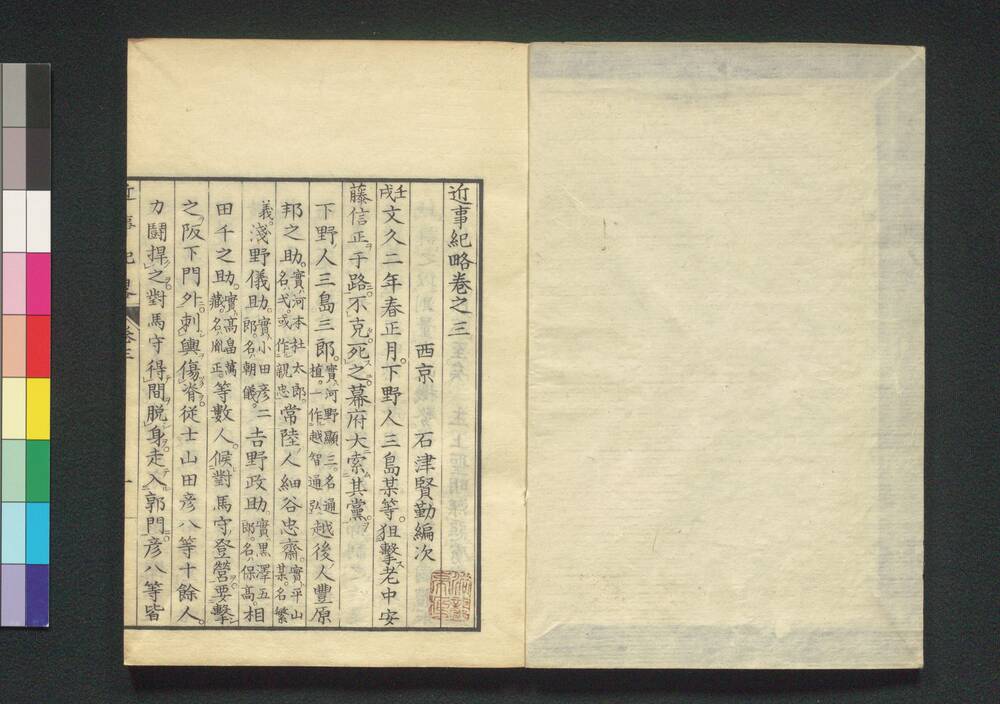 近事紀略卷之三
西京 石津賢勤編次
壬戌文久二年春正月。下野人三島某等。狙擊老中安
藤信正于路。不克。死之。幕府大索其黨。
下野人三島三郎。實河野顯三。名通植。一作越智通弘。越後人豐原
邦之助。實河本杜太郎。名弌。或作親忠。常陸人細谷忠齋。實平山某。名繁
義。淺野儀助。實小田彦二郎。名朝儀。吉野政助。實黒澤五郎。名保高。相
田千之助。實高畠萬藏。名胤正。等數人。候對馬守登營。要擊
之阪下門外。刺輿傷脊。従士山田彦八等十餘人。
力鬪捍之。對馬守得間脱身。走入郭門。彦八等皆
近事紀畧 卷三 一